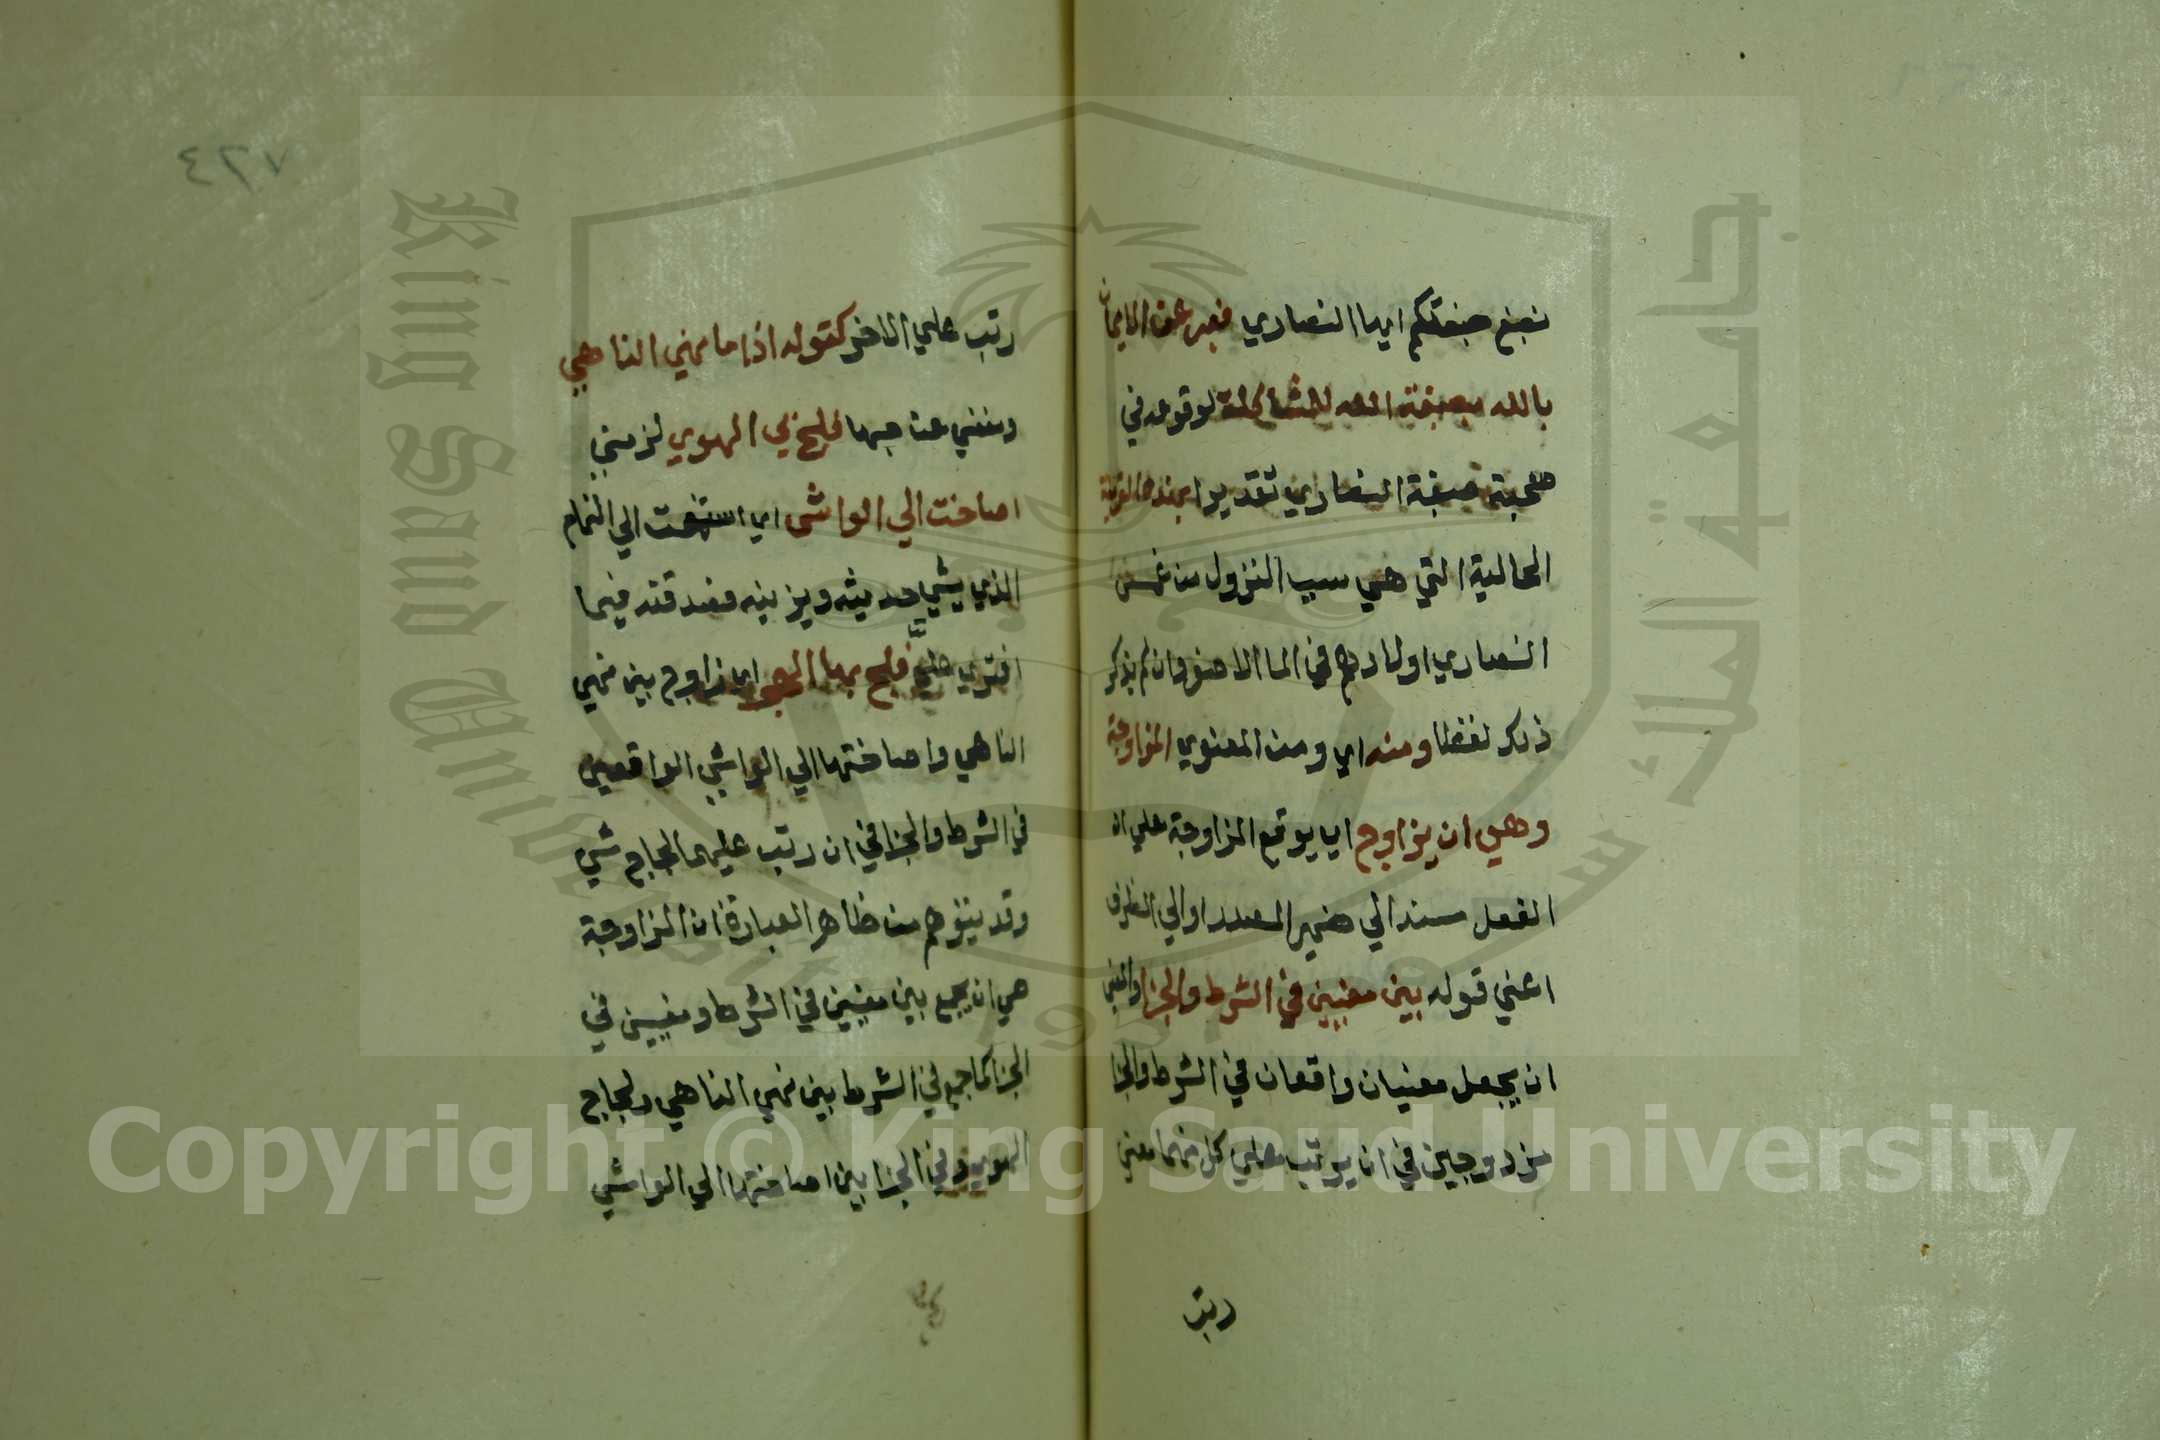 نصبغ صبغتكم ايها النصاري فعبر عن الايمان
بالله بصبغة الله للمشاكلة لوقوعه في
صحبة صبغة النصاري تقديرا بهذه القرينة
الحالية التي هي سبب النزول من غمس
النصاري اولادهم في الما الاصفر وان لم يذكر
ذلك لفظا ومنه اي ومن المعنوي المزاوجة
وهي ان يزاوج اي يوقع المزاوجة علي ان
الفعل مسند الي ضمير المصدر او الي الظرف
اعني قوله بين معنيين في الشرط والجزا والمعني
ان يجعل معنيان واقعان في الشرط والجزا
مزدوجين في ان يرتب علي كل منهما معني
رتب
٤٢٧
رتب علي الاخر كقوله اذا ما نهي الناهي
ومنعني عن حبها فلج بي الهوي لزمني
اصاخت الي الواشي اي استمعت الي النمام
الذي يشي حديثه ويزينه فصدقته فيما
افتري علي فلج بها الهجر اي زاوج بين نهي
الناهي واصاختها الي الواشي الواقعين
في الشرط والجزا في ان رتب عليهما لجاج شي
وقد يتوهم من ظاهر العبارة ان المزاوجة
هي ان يجمع بين معنيين في الشرط ومعنيين في
الجزا كما جمع في الشرط بين نهي الناهي ولجاج
الهوي وفي الجزا بين اصاختها الي الواشي
King Saud University
جامعة الملك سعود
1957
Copyright © King Saud University